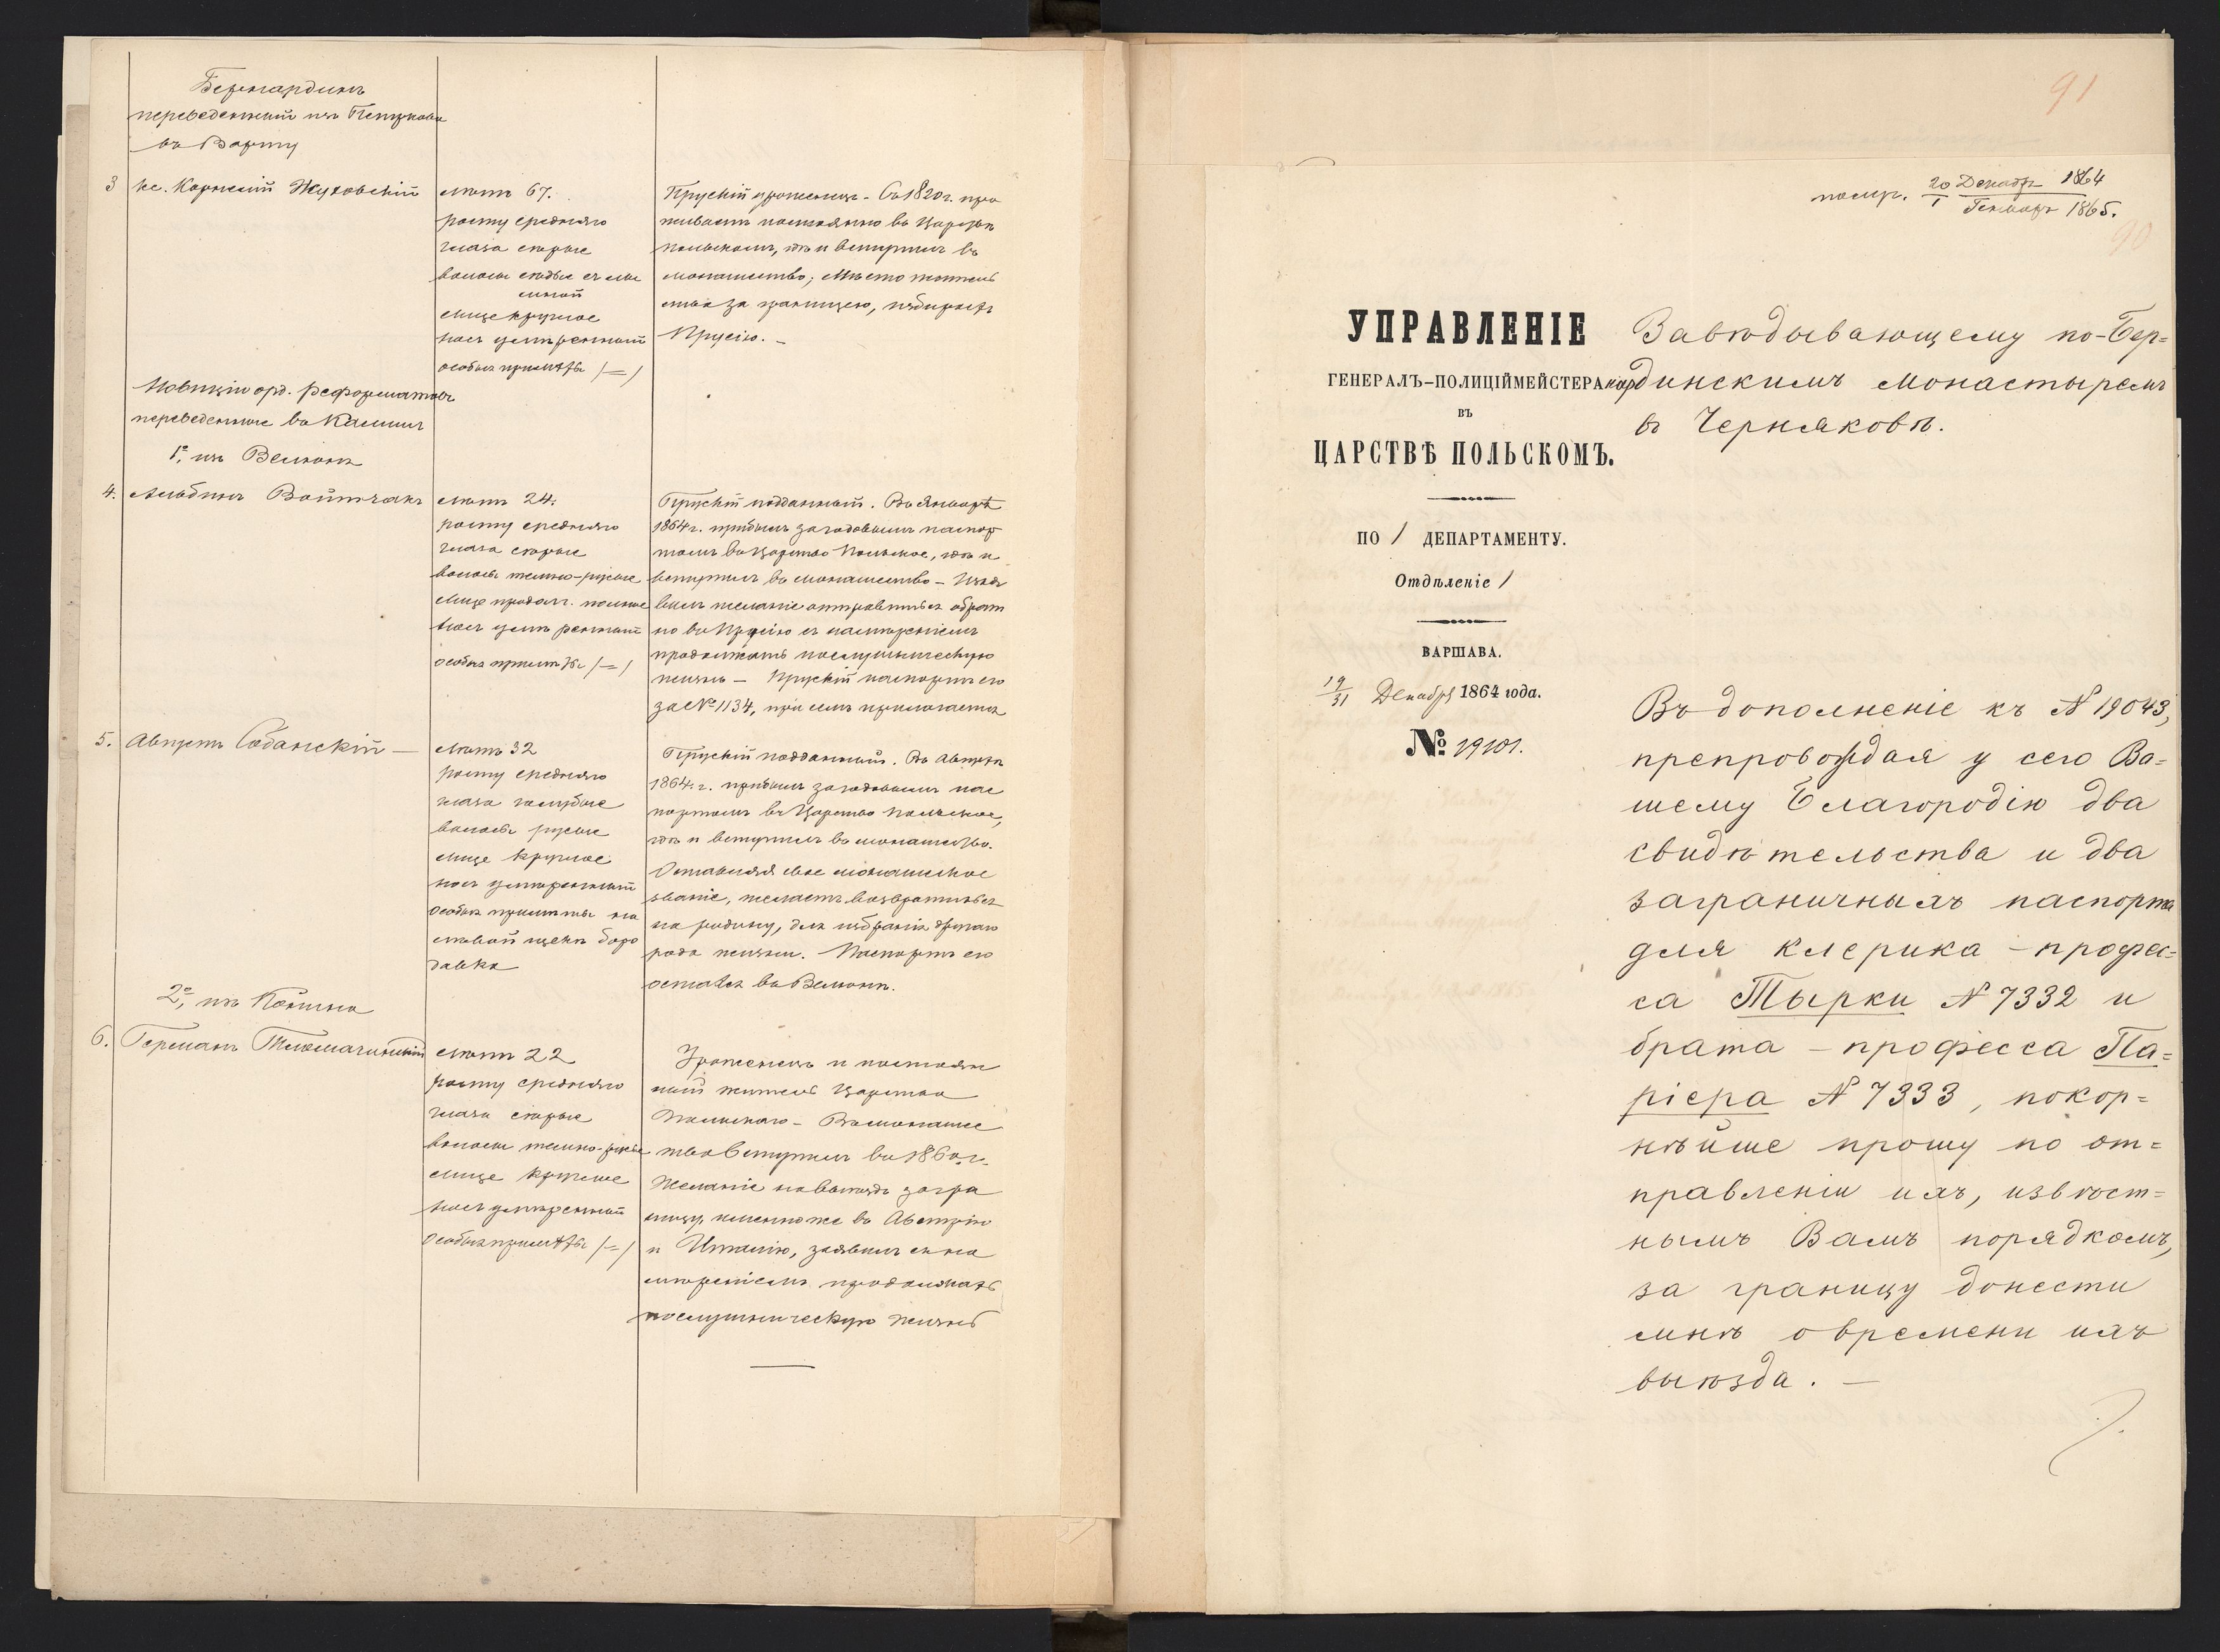 Бернардинъ
переведенный изъ Петркова
въ Варту
3 кс. Корнелій Жуховскій
лѣтъ 67.
росту средняго
глаза сѣрые
волосы сѣдые съ лы
синой
лице круглое
носъ умѣренный
особыя примѣты /=/
Прускій уроженецъ - Съ 1820 г. про
живаетъ постоянно въ Царствѣ
польскомъ, гдѣ и вступилъ въ
монашество; Мѣсто житель
ства за границею, избираетъ
Прусію. -
Новиціи орд. реформатовъ
переведенные въ Калишъ
1º, изъ Велюнь
4. Альбинъ Войтчакъ
лѣтъ 24.
росту средняго
глаза сѣрые
волосы темно-русые
лице продолг. полное
носъ умѣренный
особыя примѣты /=/
Прускій подданный. Въ Январѣ
1864 г. прибылъ за годовымъ паспор
томъ въ Царство Польское, гдѣ и
вступилъ въ монашество - Изъя
вилъ желаніе отправиться обрат
но въ Прусію съ намѣреніемъ
продолжать послушническую
жизнь - Прускій паспортъ его
за № 1134, при семъ прилагается
5. Августъ Собанскій -
лѣтъ 32
росту средняго
глаза голубые
волосы русые
лице круглое
носъ умѣренный
особыя примѣты на
лѣвой щекѣ боро
давка
Прускій подданный. Въ Августѣ
1864 г. прибылъ за годовымъ пас
портомъ въ Царство Польское,
гдѣ и вступилъ въ монашество.
Оставляя свое монашеское
званіе, желаетъ возвратиться
на родину, для избранія другаго
рода жизни. Паспортъ его
остался въ Велюнѣ.
2º, изъ Конина
6. Германъ
лѣтъ 22
росту средняго
глаза сѣрые
волосы темно-русые
лице круглое
носъ умѣренный
особыя примѣты /=/
Уроженецъ и постоян
ный житель Царства
Польскаго - Въ монаше
ство вступилъ въ 1860 г.
Желаніе на выѣздъ загра
ницу, именно же въ Австрію
и Италію, заявилъ съ на
мѣреніемъ продолжать
послушническую жизнь
91
получ. 20 Декабр 1864
1 Генваря 1865.
90
УПРАВЛЕНІЕ
ГЕНЕРАЛЪ-ПОЛИЦІЙМЕЙСТЕРА
ВЪ
ЦАРСТВѢ ПОЛЬСКОМЪ.
ПО 1 ДЕПАРТАМЕНТУ.
Отдѣленіе 1
ВАРШАВА.
19/31 Декабря 1864 года.
№ 19101.
Завѣдывающему по-Бер=
нардинскимъ монастыремъ
въ Черняковѣ.
Въ дополненіе къ № 19043,
препровождая у сего Ва=
шему Благородію два
свидѣтельства и два
заграничныхъ паспорта
для клерика - профес=
са Тырки № 7332 и
брата - професса Па=
ріера № 7333, покор=
нѣйше прошу по от=
правленіи ихъ, извѣст=
нымъ Вамъ порядкомъ,
за границу донести
мнѣ о времени ихъ
выѣзда. -